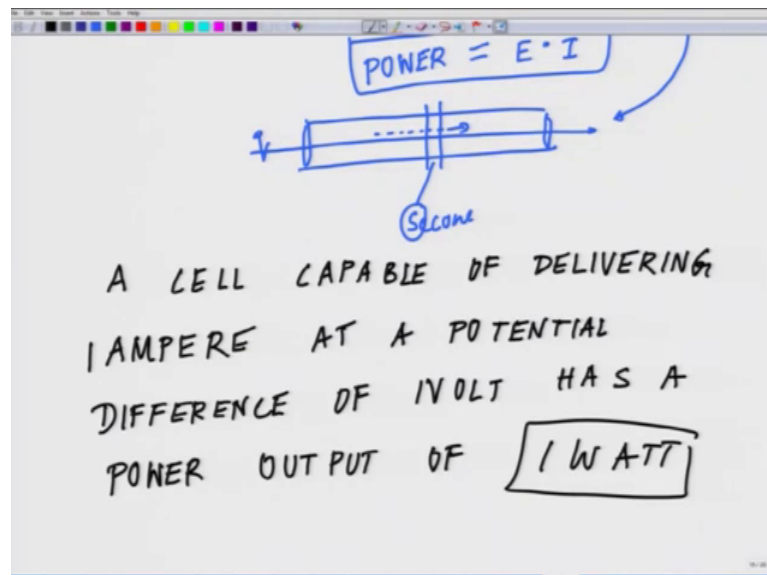 File Edit View Insert Actions Tools Help
POWER = E · I
Secone
A CELL CAPABLE OF DELIVERING
1 AMPERE AT A POTENTIAL
DIFFERENCE OF 1VOLT HAS A
POWER OUTPUT OF 1 WATT